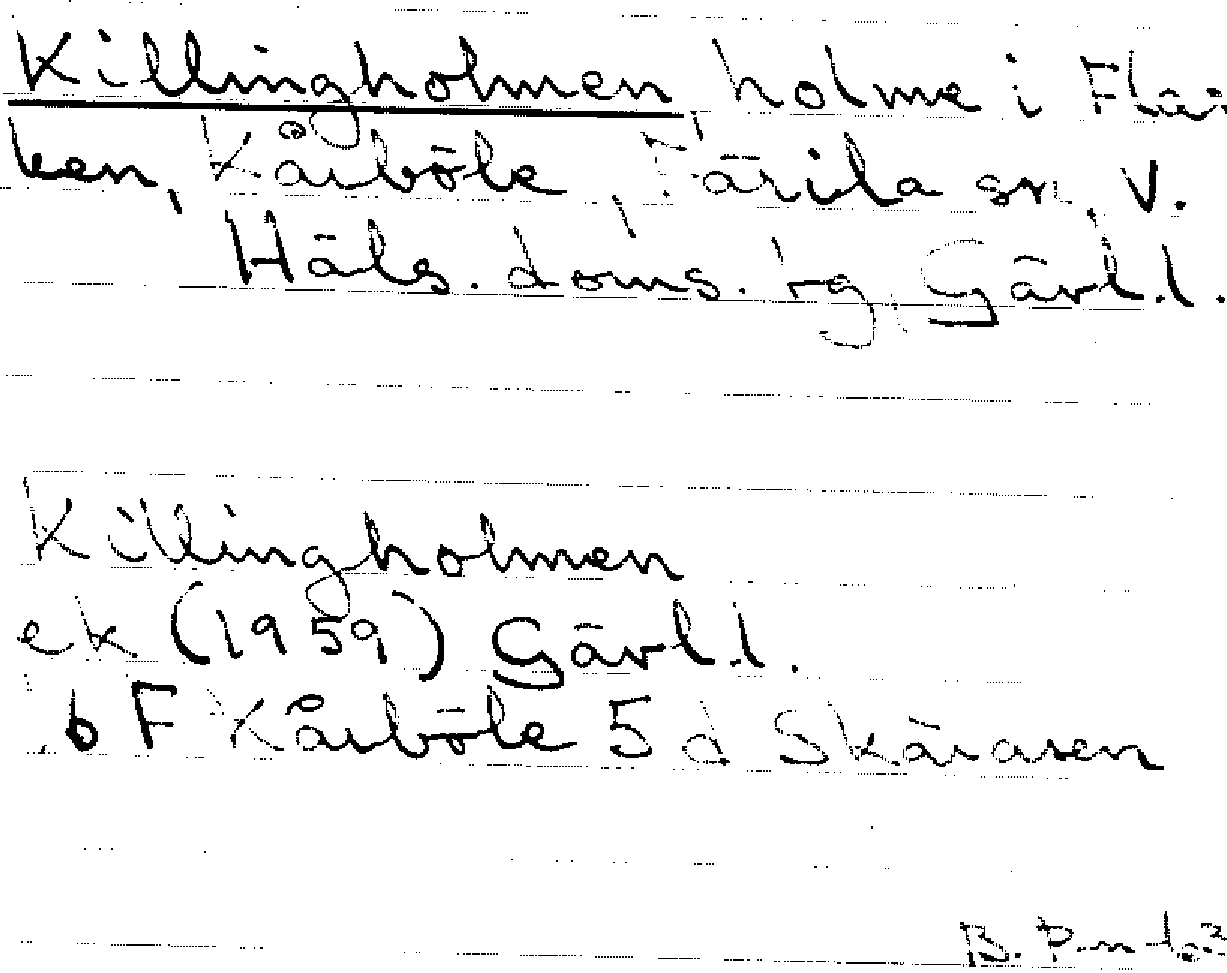 Killingholmen holme i Flar-
ken, Kårböle, Färila sn, V.
Häls. doms. Gävl.l.
Killingholmen
ek (1959) Gävl.l.
bF Kårböle 5 d Skåråsen
B.